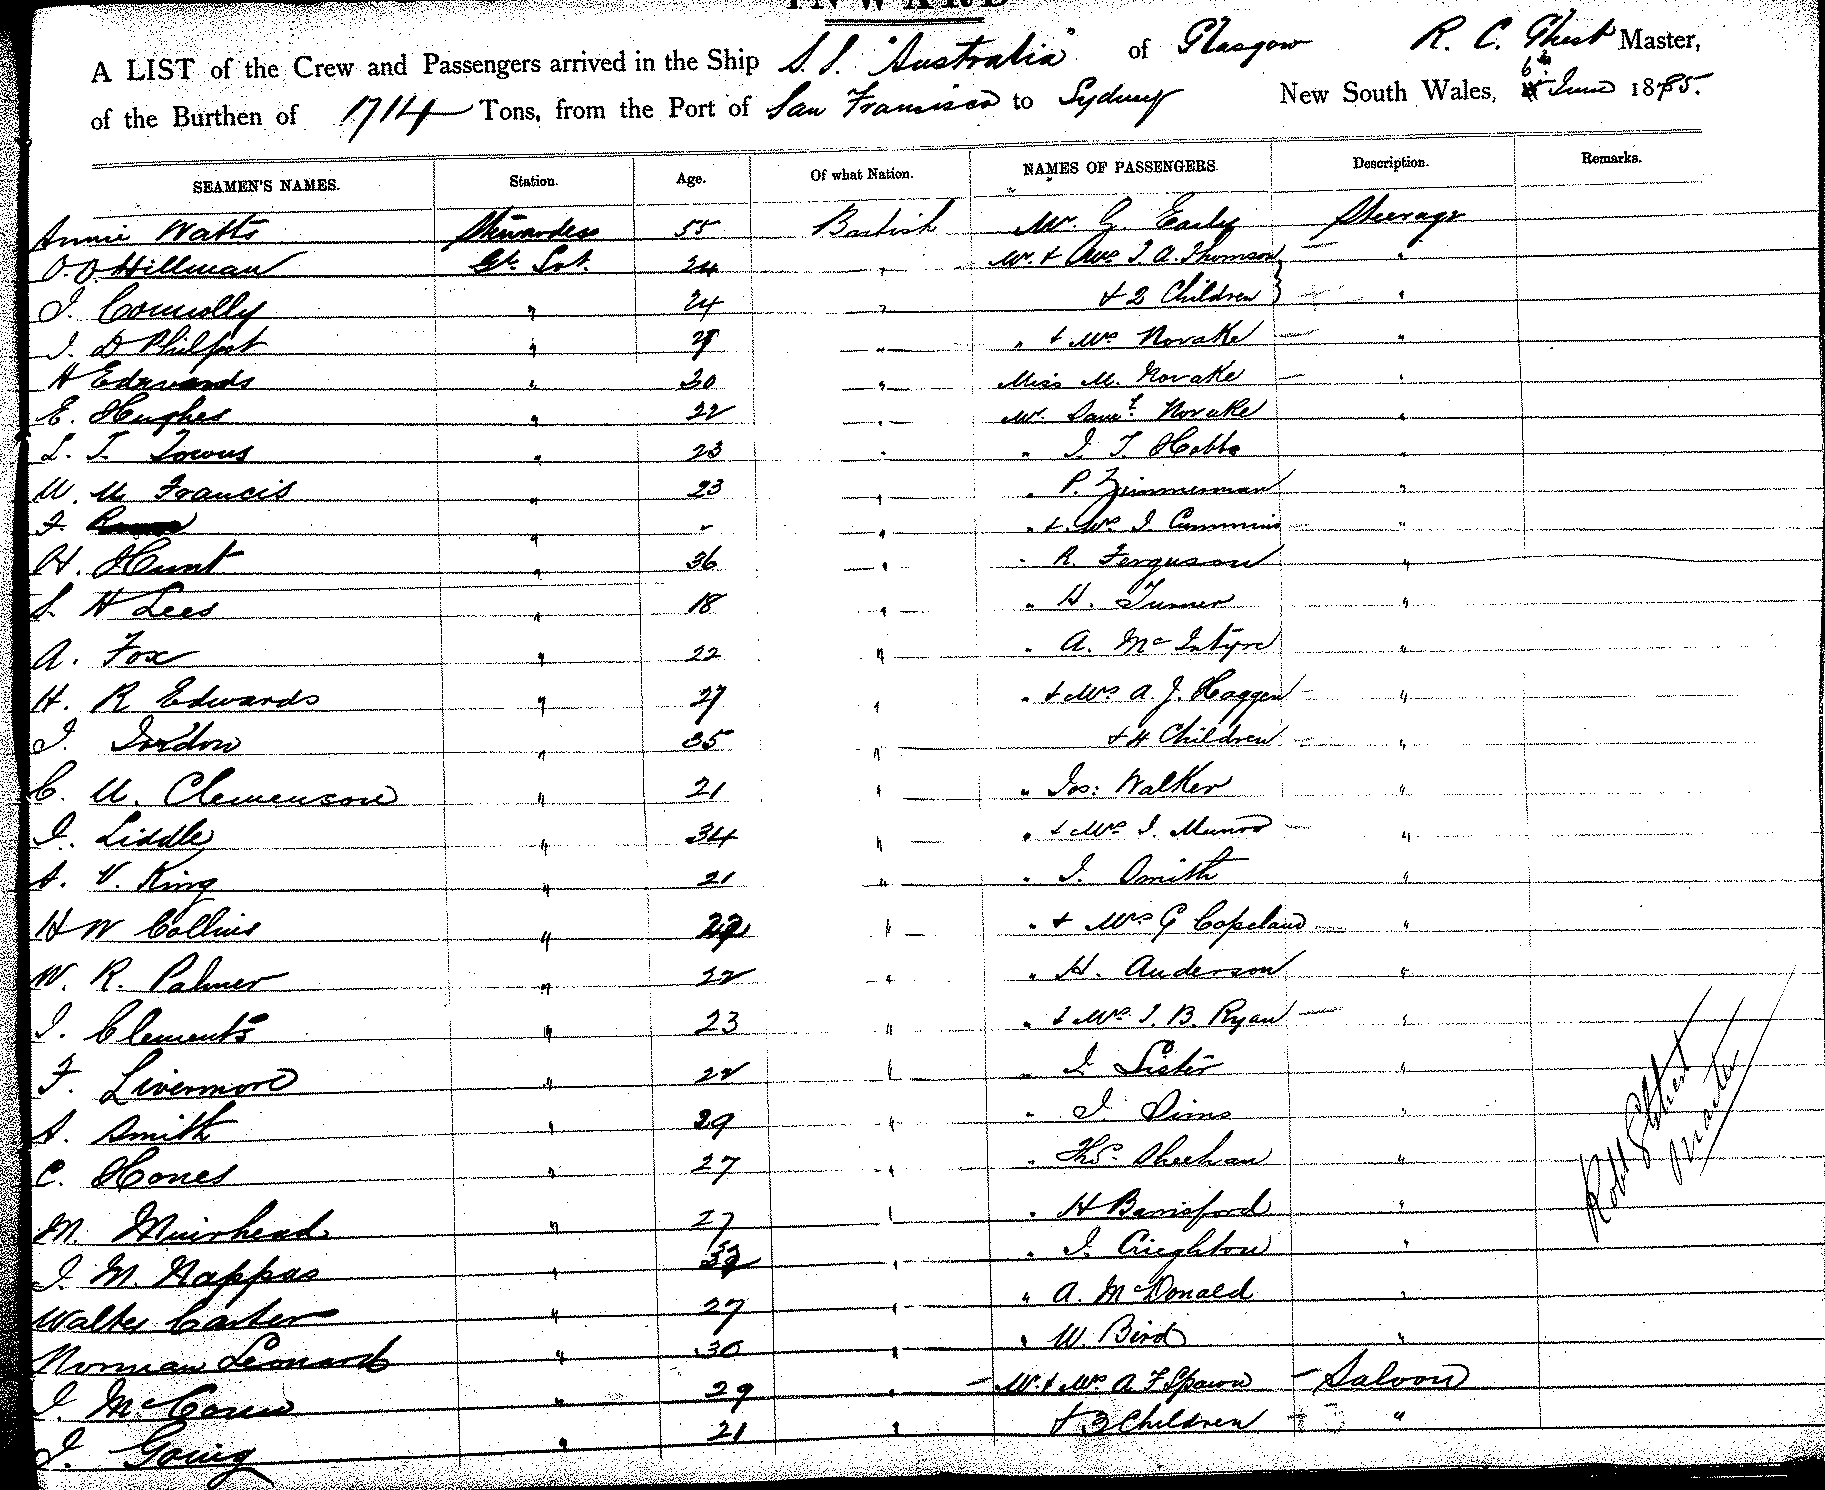 INWARD
A LIST of the Crew and Passengers arrived in the Ship S.S. "Australia" of Glasgow R. C. Ghest Master,
of the Burthen of 1714 Tons, from the Port of San Francisco to Sydney New South Wales, 6th June 1885.
SEAMEN'S NAMES. Station. Age. Of what Nation. NAMES OF PASSENGERS Description. Remarks.
Annie Watts Stewardess 55 British Mr. G. Early Steerage
O. O. Hillman Gl. Svt. 24 " Mr. & Mrs J. A. Thomson "
J. Connolly " 24 " & 2 Children "
J. D Philpot " 29 " " & Mrs Novake "
H Edwards " 30 " Miss M. Novake "
E. Hughes " 22 " Mr. Saml. Novake "
L. T. Towns " 23 " " J. T Hobbs "
W. U Francis " 23 " " P. Zimmerman "
F. " - " " & Mrs J. Cummins "
H. Hunt " 36 " " R. Ferguson "
S. H Lees " 18 " " H. Turner "
A. Fox " 22 " " A. McIntyre "
H. R Edwards " 27 " " & Mrs A. J. Haggen "
J. Jordon " 35 " & 4 Children "
C. U. Clemenson " 21 " " Jos: Walker "
J. Liddle " 34 " " & Mrs J. Munro "
A. V. King " 21 " " J. Smith "
H W Collins " " " & Mrs G Copeland "
W. R. Palmer " 22 " " H. Anderson "
J. Clements " 23 " " & Mrs J. B. Ryan "
F. Livermore " 22 " " J. Lister "
A. Smith " 29 " " J. Sims "
C. Hones " 27 " " Thos. Sheehan "
M. Muirhead " 27 " " H Barisford "
J. M. Nappas " 33 " " J. Crieghton "
Walter Carter " 27 " " A. McDonald "
Norman Leonard " 30 " " W. Bird "
J. McCown " 29 " Mr. & Mrs A F Spawn Saloon
J. Going " 21 " & 3 Children "
Robt Ghest
Master